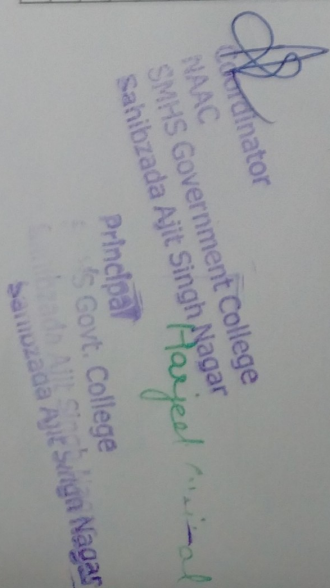 Coordinator
NAAC
SMHS Government College
Sahibzada Ajit Singh Nagar
Harjeet
Principal
Govt. College
Sahibzada Ajit Singh Nagar